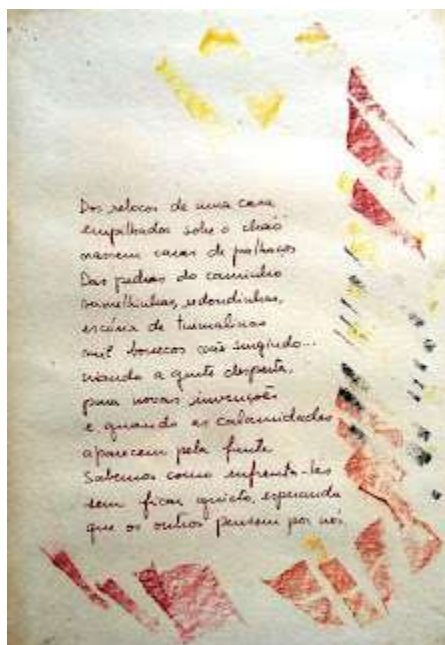 Dos rebocos de uma casa
empalhados sobre o chão
nascem caras de palhaços
Das pedras do caminho
vermelhinhas, redondinhas,
escória de turmalinas
mil bonecos vão surgindo...
criando a gente desperta,
para novas invenções
e quando as calamidades
aparecem pela frente
Sabemos como enfrentá-las
sem ficar quieto, esperando
que os outros pensem por nós.